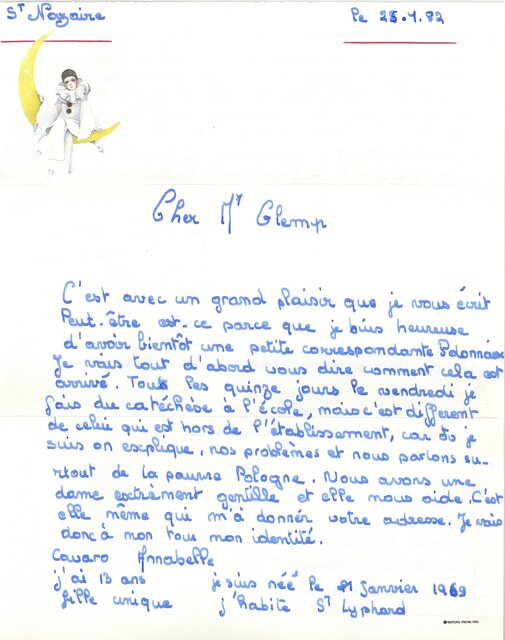 Sᵀ Nazaire
le 25.4.82
Cher Mʳ Glemp
C'est avec un grand plaisir que je vous écrit
Peut-être est-ce parce que je suis heureuse
d'avoir bientôt une petite correspondante Polonnaise
Je vais tout d'abord vous dire comment cela est
arrivé. Tous les quinze jours le vendredi je
fais du catéchèse à l'école, mais c'est different
de celui qui est hors de l'établissement, car où je
suis on esxplique, nos problèmes et nous parlons su-
rtout de la pauvre Pologne. Nous avons une
dame extrèment gentille et elle nous aide. C'est
elle même qui m'à donnér votre adresse. Je vais
donc à mon tour mon identité.
Cavaro Annabelle
j'ai 13 ans je suis néé le 21 Janvier 1969
fille unique j'habite Sᵀ Lyphard